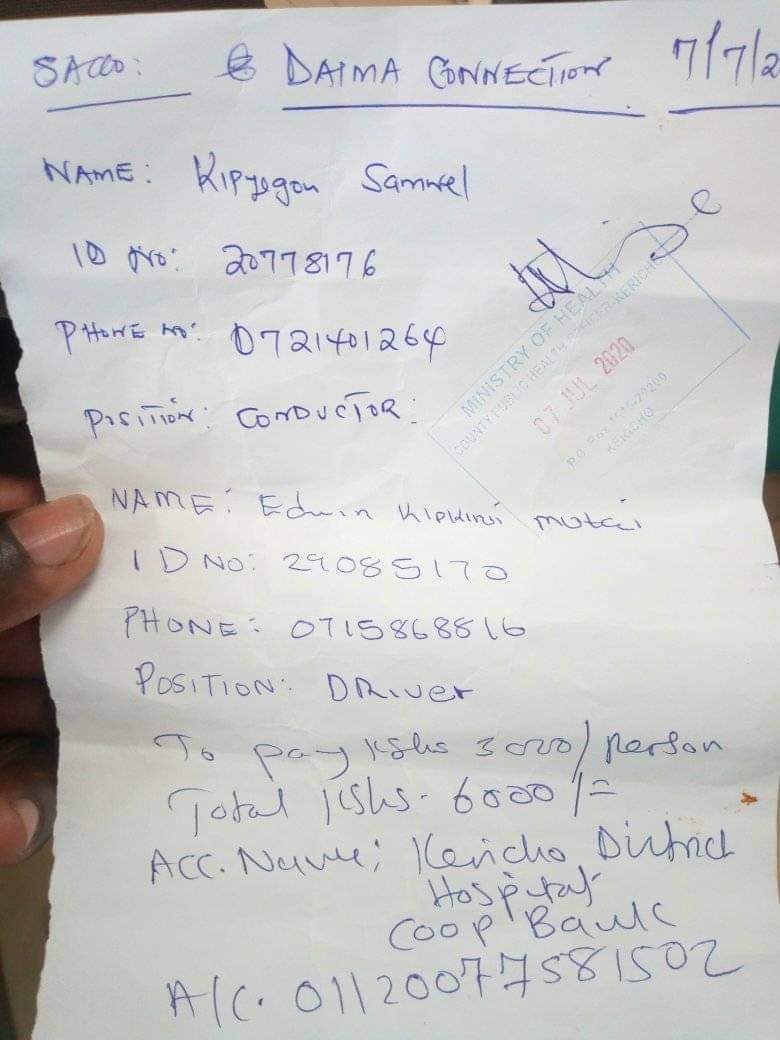 SACCO: DAIMA CONNECTION 7/7/2
NAME: Kipyegon Samwel
ID No: 20778176
PHONE NO: 0721401264
POSITION: CONDUCTOR:
MINISTRY OF HEALTH
COUNTY PUBLIC HEALTH KERICHO
07 JUL 2020
P.O. Box 20200
KERICHO
NAME: Edwin Kipkirui mutai
ID NO: 29085170
PHONE: 0715868816
POSITION: DRIVER
To pay Kshs 3000/person
Total Kshs. 6000/=
ACC. Name; Kericho District
Hospital
COOP Bank
A/C. 01120077581502